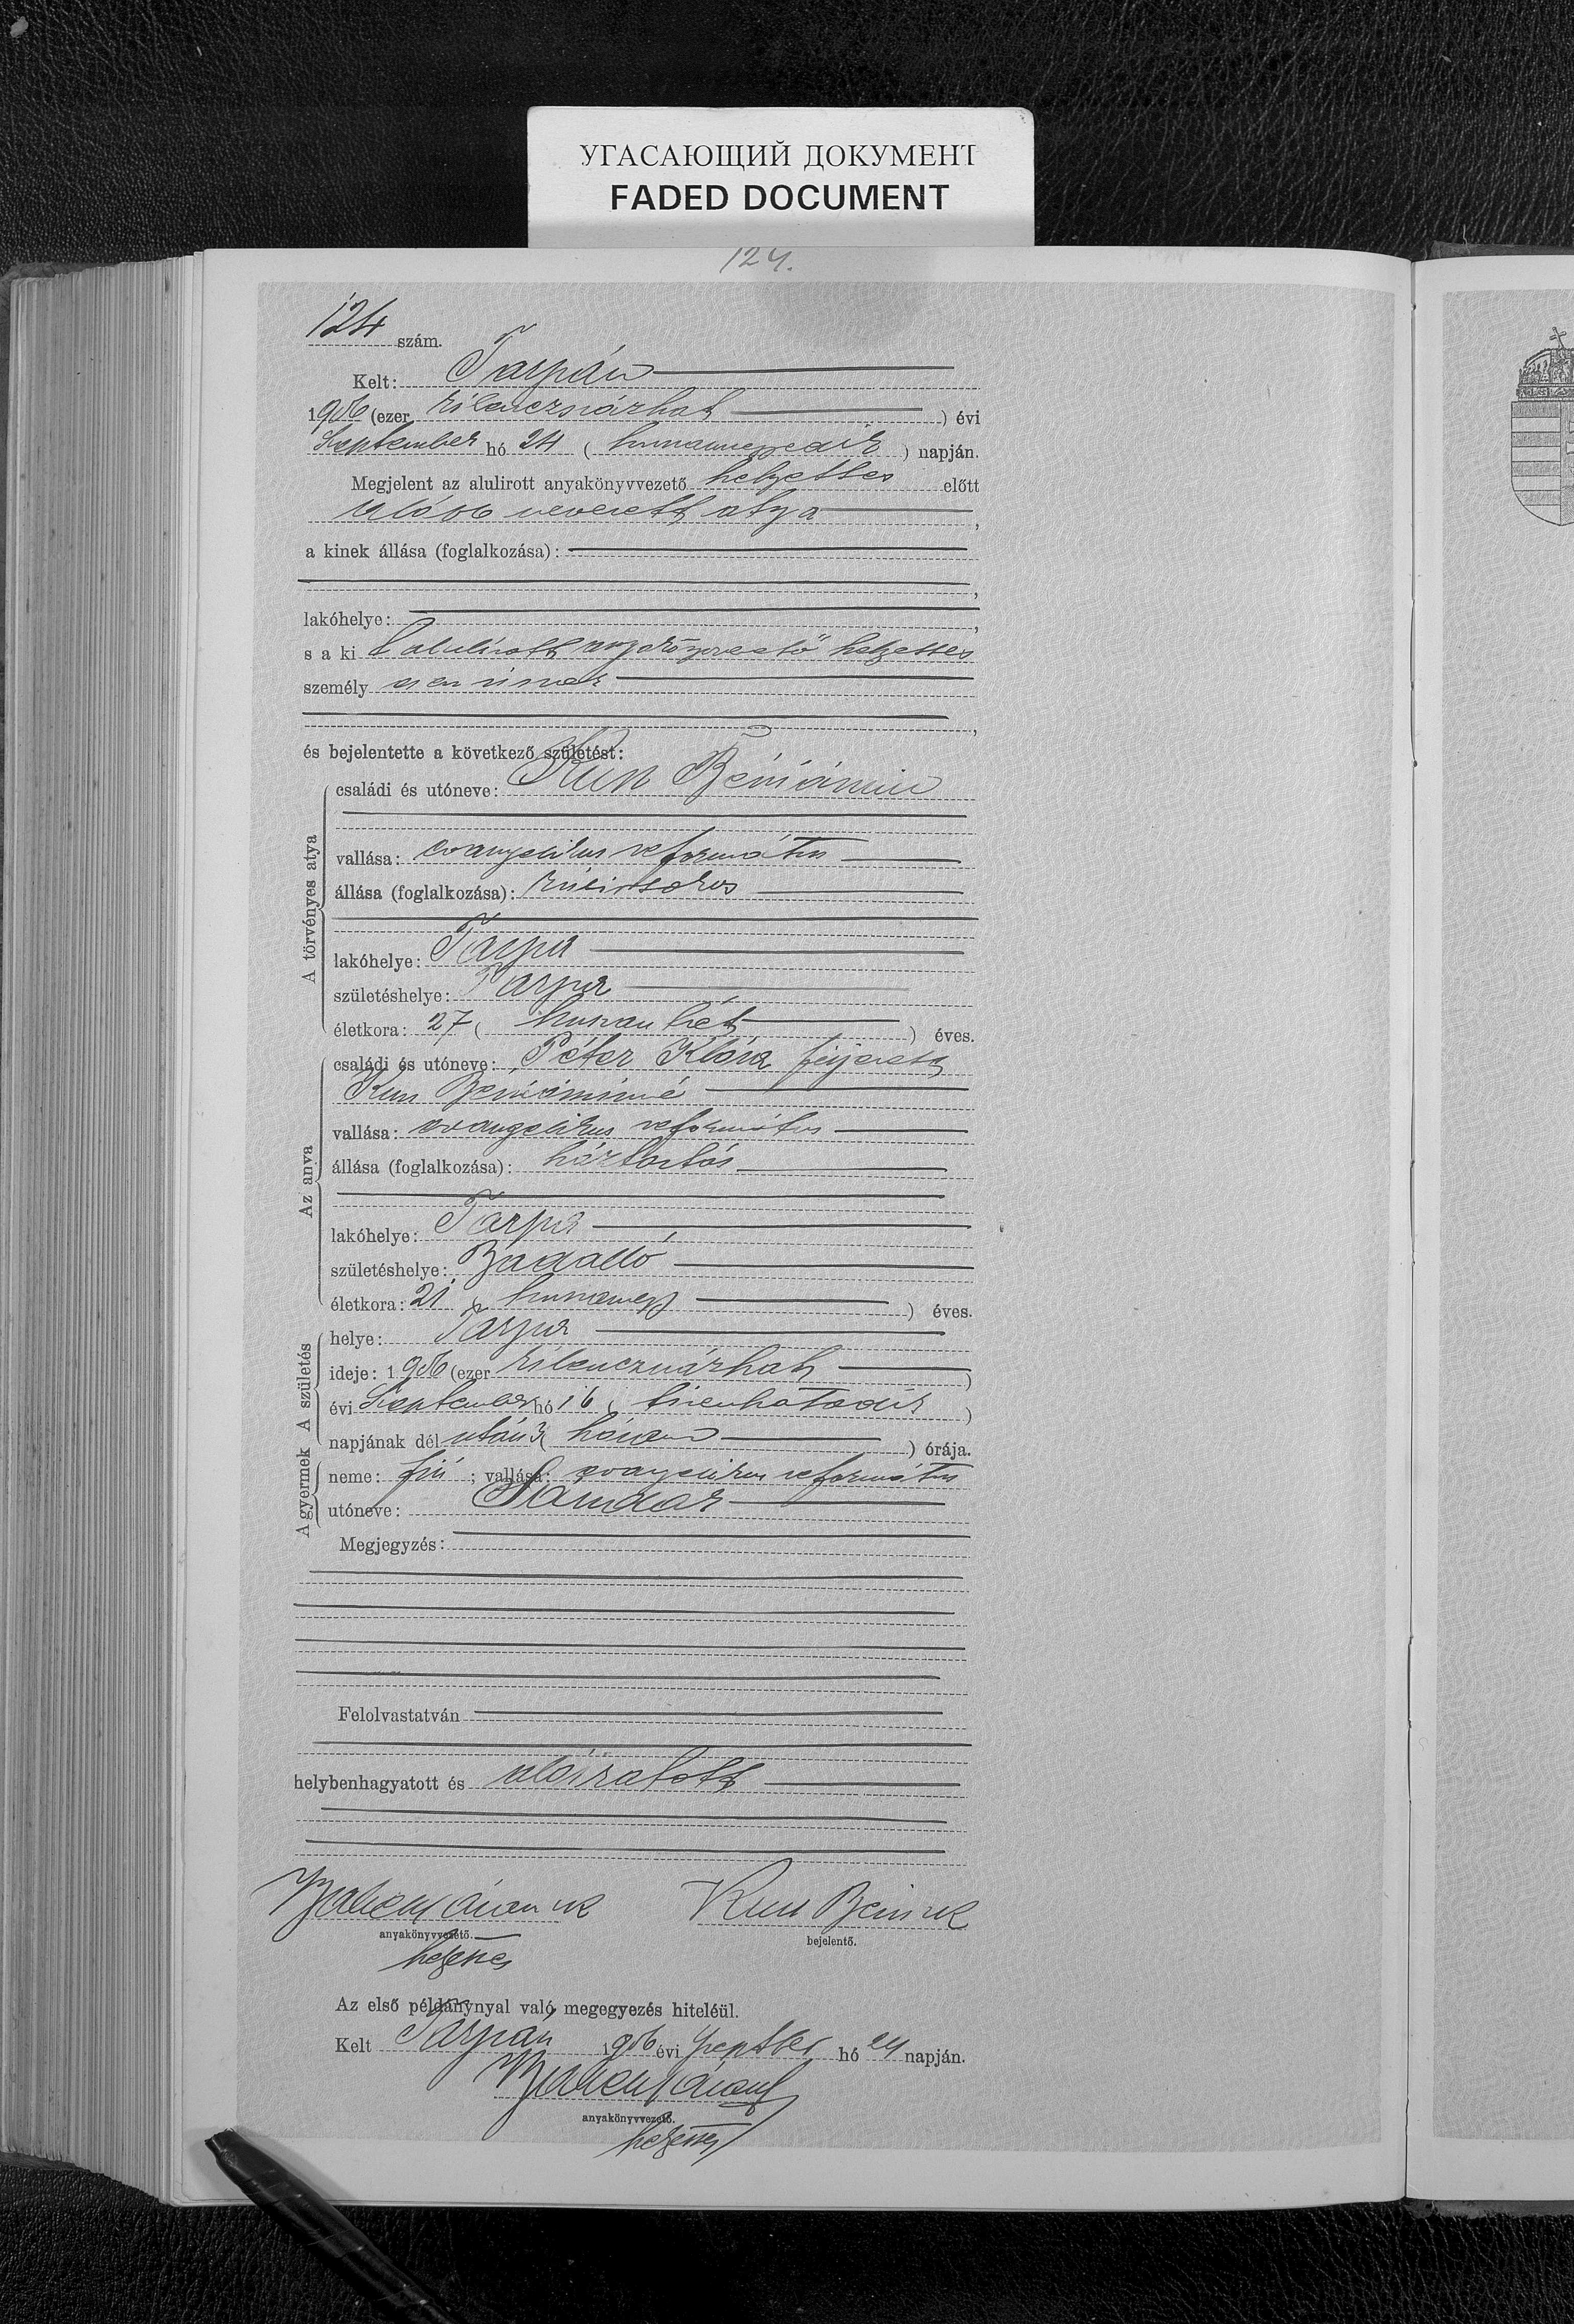 УГАСАЮЩИЙ ДОКУМЕНТ
FADED DOCUMENT
124.
124 szám.
Kelt: Tarpán
1906 (ezer kilenczszázhat ) évi
Szeptember hó 24 ( huszonnegyedik ) napján.
Megjelent az alulirott anyakönyvvezető helyettes előtt
alább nevezett atya ,
a kinek állása (foglalkozása):
,
lakóhelye: ,
s a ki alulírott anyakönyvvezető helyettes
személyesen ismer
,
és bejelentette a következő születést:
A törvényes atya
családi és utóneve: Kun Béniámin
vallása: evangelikus református
állása (foglalkozása):
lakóhelye: Tarpa
születéshelye: Tarpa
életkora: 27 ( huszonhét ) éves.
Az anya
családi és utóneve: Péter Klára férjezett
Kun Béniáminné
vallása: evangelikus református
állása (foglalkozása): háztartás
lakóhelye: Tarpa
születéshelye:
életkora: 21 ( huszonegy ) éves.
A születés
helye: Tarpa
ideje: 1906 (ezer kilenczszázhat )
évi Szeptember hó 16 ( tizenhatodik )
napjának dél után 3 ( három ) órája.
A gyermek
neme: fiú ; vallása: evangelikus református
utóneve: Sándor
Megjegyzés:
Felolvastatván
helybenhagyatott és aláíratott
Kun Béni
anyakönyvvezető.
bejelentő.
helyettes
Az első példánynyal való megegyezés hiteléül.
Kelt Tarpán 1906 évi Szeptber hó 24 napján.
anyakönyvvezető.
helyettes